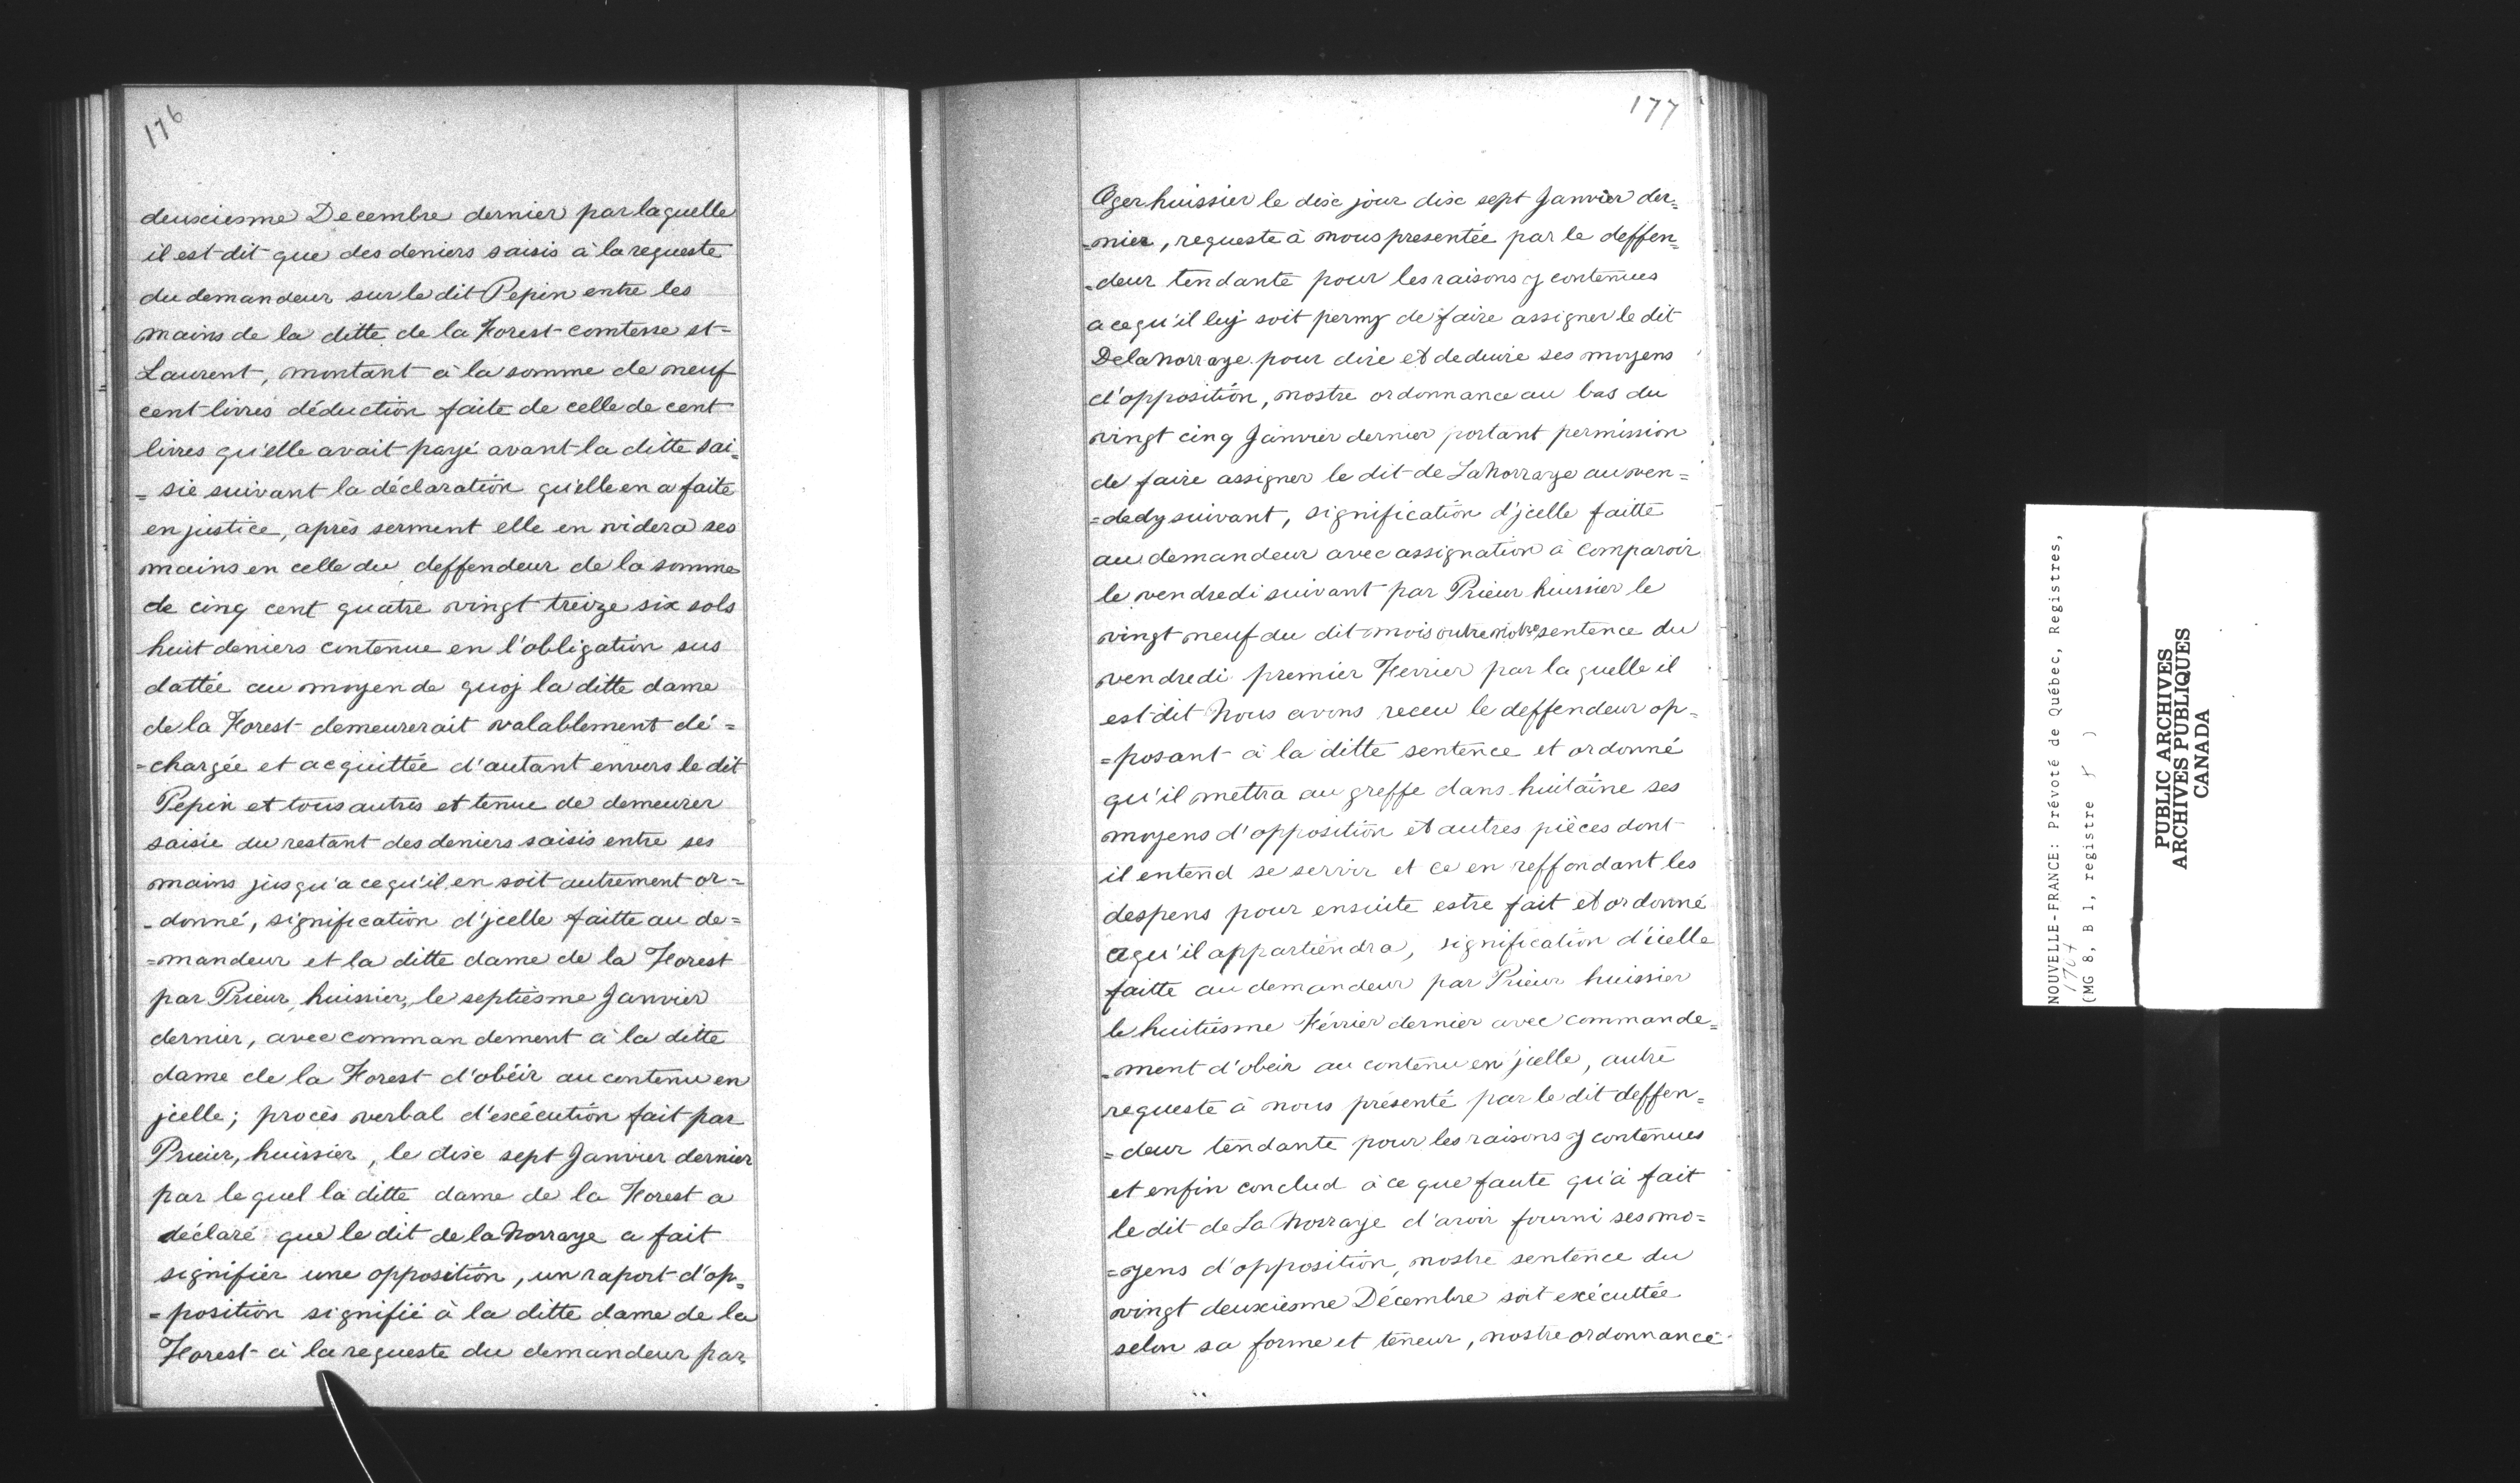 176
deuxiesme Decembre dernier par laquelle
il est dit que des deniers saisis à la requeste
du demandeur sur le dit Pepin entre les
mains de la ditte de la Forest comtesse st=
Laurent, montant à la somme de neuf
cent livres déduction faite de celle de cent
livres qu'elle avait payé avant la ditte sai=
=sie suivant la déclaration qu'elle en a faite
en justice, après serment elle en videra ses
mains en celle du deffendeur de la somme
de cinq cent quatre vingt treize six sols
huit deniers contenue en l'obligation sus
dattée au moyen de quoj la ditte dame
de la Forest demeurerait valablement dé=
=chargée et acquittée d'autant envers le dit
Pepin et tous autres et tenue de demeurer
saisie du restant des deniers saisis entre ses
mains jusqu'a ce qu'il en soit autrement or=
=donné, signification d'jcelle faitte au de=
=mandeur et la ditte dame de la Forest
par Prieur, huissier, le septiesme Janvier
dernier, avec commandement à la ditte
dame de la Forest d'obéir au contenu en
jcelle; procès verbal d'exécution fait par
Prieur, huissier, le dix sept Janvier dernier
par lequel la ditte dame de la Forest a
déclaré que le dit de la Norraye a fait
signifier une opposition, un raport d'op=
=position signifié à la ditte dame de la
Forest à la requeste du demandeur par
177
Oger huissier le dix jour dix sept Janvier der=
=nier, requeste à nous presentée par le deffen=
=deur tendante pour les raisons y contenues
a ce qu'il luj soit permy de faire assigner le dit
Delanorraye pour dire et deduire ses moyens
d'opposition, nostre ordonnance au bas du
vingt cinq Janvier dernier portant permission
de faire assigner le dit de LaNorraye au ven=
=dedy suivant, signification d'jcelle faitte
au demandeur avec assignation à comparoir
le vendredi suivant par Prieur huissier le
vingt neuf du dit mois outre notre sentence du
vendredi premier Fevrier par laquelle il
est dit Nous avons receu le deffendeur op=
=posant à la ditte sentence et ordonné
qu'il mettra au greffe dans huitaine ses
moyens d'opposition et autres pièces dont
il entend se servir et ce en reffondant les
despens pour ensuite estre fait et ordonné
cequ'il appartiendra, signification d'icelle
faitte au demandeur par Prieur huissier
le huitiesme Février dernier avec commande=
=ment d'obeir au contenu en jcelle, autre
requeste à nous présenté par le dit deffen=
=deur tendante pour les raisons y contenues
et enfin conclud à ce que faute qu'à fait
le dit de La Norraye d'avoir fourni ses mo=
=yens d'opposition, nostre sentence du
vingt deuxiesme Décembre soit exécuttée
selon sa forme et teneur, nostre ordonnance
NOUVELLE-FRANCE: Prévoté de Québec, Registres,
1707
(MG 8, B 1, registre )
PUBLIC ARCHIVES
ARCHIVES PUBLIQUES
CANADA